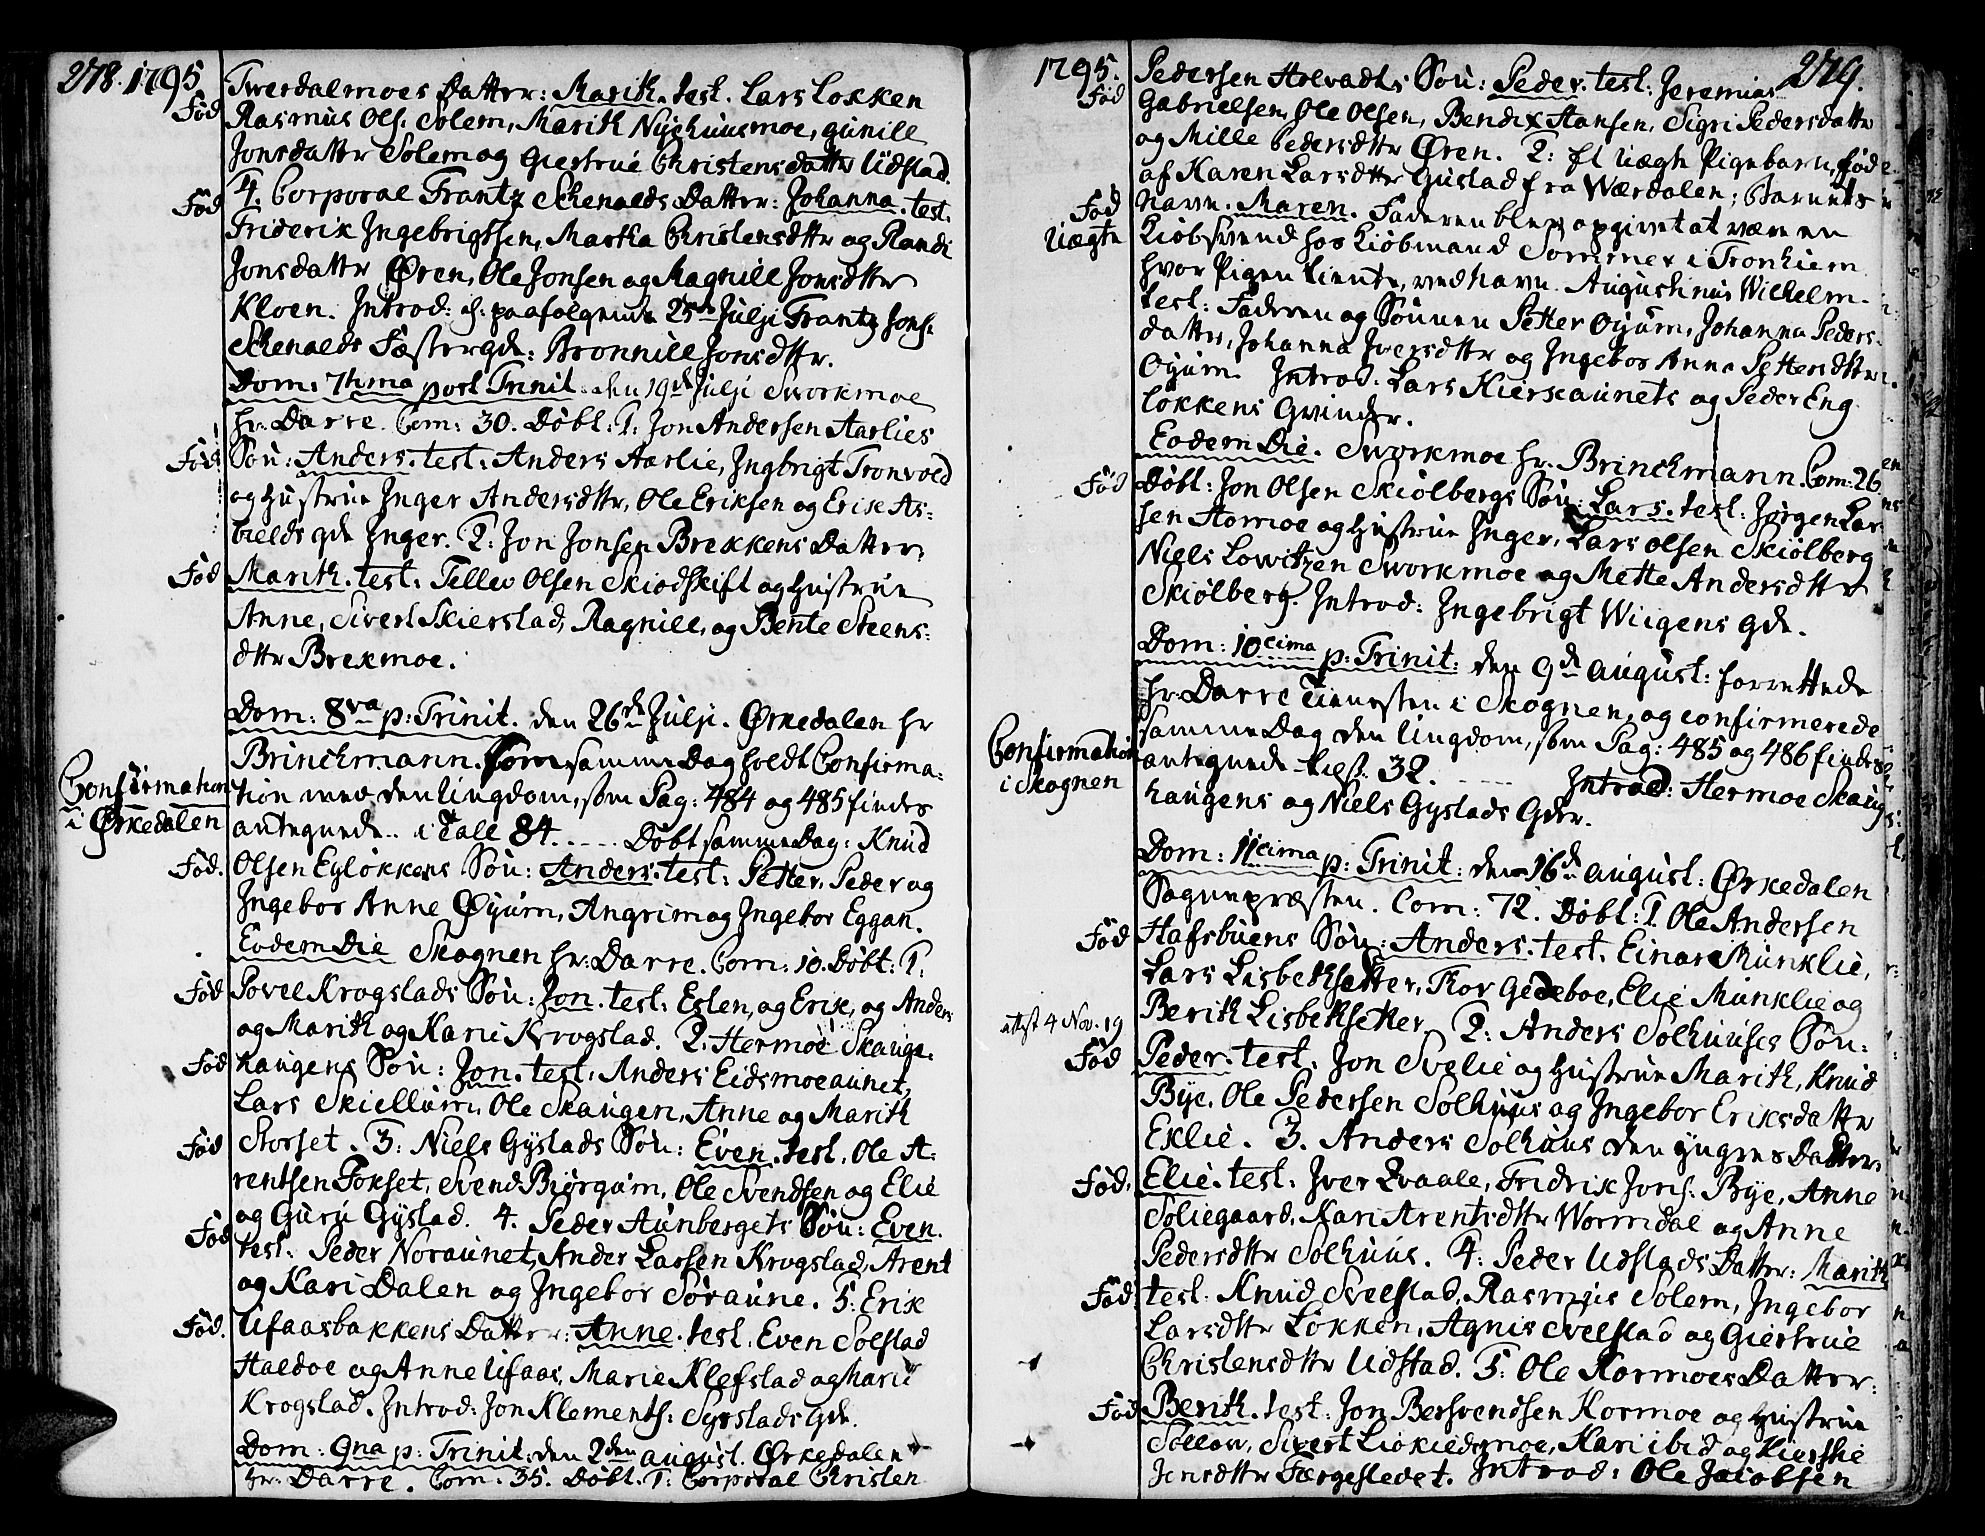 278. 1795
Twerdalmoes Datter: Marith. test. Lars Løkken
Fød
Rasmus Ols. Solem, Marith Nyehuusmoe, Gunill
Jonsdattr Solem og Giertrue Christensdattr Udstad.
Fød
4. Corporal Frantz Schenaldts Datter: Johanna. test.
Friderik Ingebrigtsen, Martha Christensdttr og Randi
Jonsdattr Øren, Ole Jonsen og Magnill Jonsdttr
Kloen. Introd: paafølgende 25de Julji Frantz Jons:
Schenalds Fæstergde: Bronnill Jonsdttr.
Dom: 7tima post Trinit den 19de Julji Sworkmoe
hr. Darre. Com: 30. Døbt: 1. Jon Andersen Aarlies
Fød
Søn: Anders. test. Anders Aarlie, Ingbrigt Tronvold
og Hustrue Inger Andersdttr, Ole Eriksen og Erik As-
bields gde Inger. 2: Jon Jonsen Brekkens Datter:
Fød
Marith. test. Tellev Olsen Skiødskift og Hustrue
Anne, Sivert Skierstad, Ragnill, og Bente Steens:
dttr Brekmoe.
Dom: 8va p: Trinit. den 26de Julji. Ørkedalen hr
Brinckmann. som samme Dag holdt Confirma-
Confirmation
i Ørkedalen
tion med den Ungdom, som Pag: 484 og 485 findes
antegnede.. i Tall 84..... Døbt samme Dag: Knud
Fød.
Olsen Eyløkkens Søn: Anders. test: Petter, Peder og
Ingebor Anne Øyum, Angrim og Ingebor Eggan.
Eodem Die Skognen hr. Darre. Com: 10. Døbt: 1:
Fød
Povel Krogstads Søn: Jon. test: Esten, og Erik, og Anders
og Marith og Kari Krogstad. 2: Hermoe Skauge-
Fød
haugens Søn: Jon. test. Anders Eidsmoeaunet,
Lars Skiellum, Ole Skaugen, Anne og Marith
Fød
Storset. 3: Niels Gystads Søn: Even. test. Ole A:
rentsen Fokset, Svend Biørgum, Ole Svendsen og Elie
og Guru Gystad. 4. Peder Aunbergets Søn: Even.
Fød
test: Peder Noraunet, Ander Larsen Krogstad, Arent
og Kari Dalen og Ingebor Søraune. 5: Erik
Fød.
Ufaasbakkens Datter: Anne. test. Even Solstad
Haldoe og Anne Ufaas, Marie Klefstad og Marit
Krogstad. Introd: Jon Klements: Syrstads gde.
Dom: 9na p: Trinit: den 2den august. Ørkedalen
hr. Darre. Com: 35. Døbt. 1: Corporal Christen
1795.
279.
Fød
Pedersen Holvadts Søn: Peder. test: Jeremias
Gabrielsen, Ole Olsen, Bendix Hansen, Sigri Pedersdattr
og Mille Pedersdttr Øren. 2: Et Uægte Pigebarn, fød
af Karen Larsdttr Gustad fra Wærdalen; Barnets
Fød
Uægte
Navn. Maren. Faderen blev opgivet at være en
Kiøbsvend hos Kiøbmand Sommer i Tronhiem
hvor Pigen tiente, ved Navn. Augustinus Wilhelm.
test: Faderen og Sønnen Petter Øyum, Johanna Peders-
dattr, Johanna Iversdttr og Ingebor Anna Pettersdttr
Øyum. Introd. Lars Kierskaunets og Peder Eng
løkkens Qvinder.
Eodem Die. Sworkmoe hr. Brinckmann. Com: 26
Fød
Døbt: Jon Olsen Skiølbergs Søn: Lars. test: Jørgen Lar-
sen Homoe og Hustrue Inger, Lars Olsen Skiølberg
Niels Lowitzen Sworkmoe og Mette Andersdttr
Skiølberg. Introd: Ingebrigt Wiigens gde.
Dom: 10cima p: Trinit: den 9de august: forrettede
hr. Darre Tienesten i Skognen, og confirmerede
Confirmation
i Skognen
samme Dag den Ungdom, som Pag: 485 og 486 findes
antegnede til 32. ..... Introd: Hermoe Skaug
haugens og Niels Gystads Gder.
Dom: 11cima p: Trinit: den 16de august: Ørkedalen
Sognepræsten. Com: 72. Døbt: 1. Ole Andersen
Fød
Hafsbuens Søn: Anders. test. Einar Munklie,
Lars Lisbethsetter, Thor Gedeboe, Elie Munklie og
attest 4 Nov. 19
Berith Lisbethsetter. 2: Anders Solhuuses Søn:
Fød
Peder. test: Jon Svelie og Hustrue Marith, Knud
Bye, Ole Pedersen Solhuus og Ingebor Eriksdattr
Eklie. 3. Anders Solhuus den yngres Datter:
Fød.
Elie. test: Iver Qvaale, Fridrik Jons: Bye, Anne
Soliegaard, Kari Arentsdttr Wormdal og Anne
Pedersdttr Solhuus. 4: Peder Udstads Datter: Marith
Fød
test: Knud Svelstad, Rasmus Solem, Ingebor
Larsdttr Løkken, Agnis Svelstad og Giertrue
Christensdttr Udstad. 5: Ole Kormoes Datter:
Fød
Berith. test: Jon Bersvendsen Kormoe og Hustrue
Sollow, Sivert Liøkiedmoe, Kari ibid og Kiersthe
Jensdttr Færgestedet. Introd: Ole Jacobsen